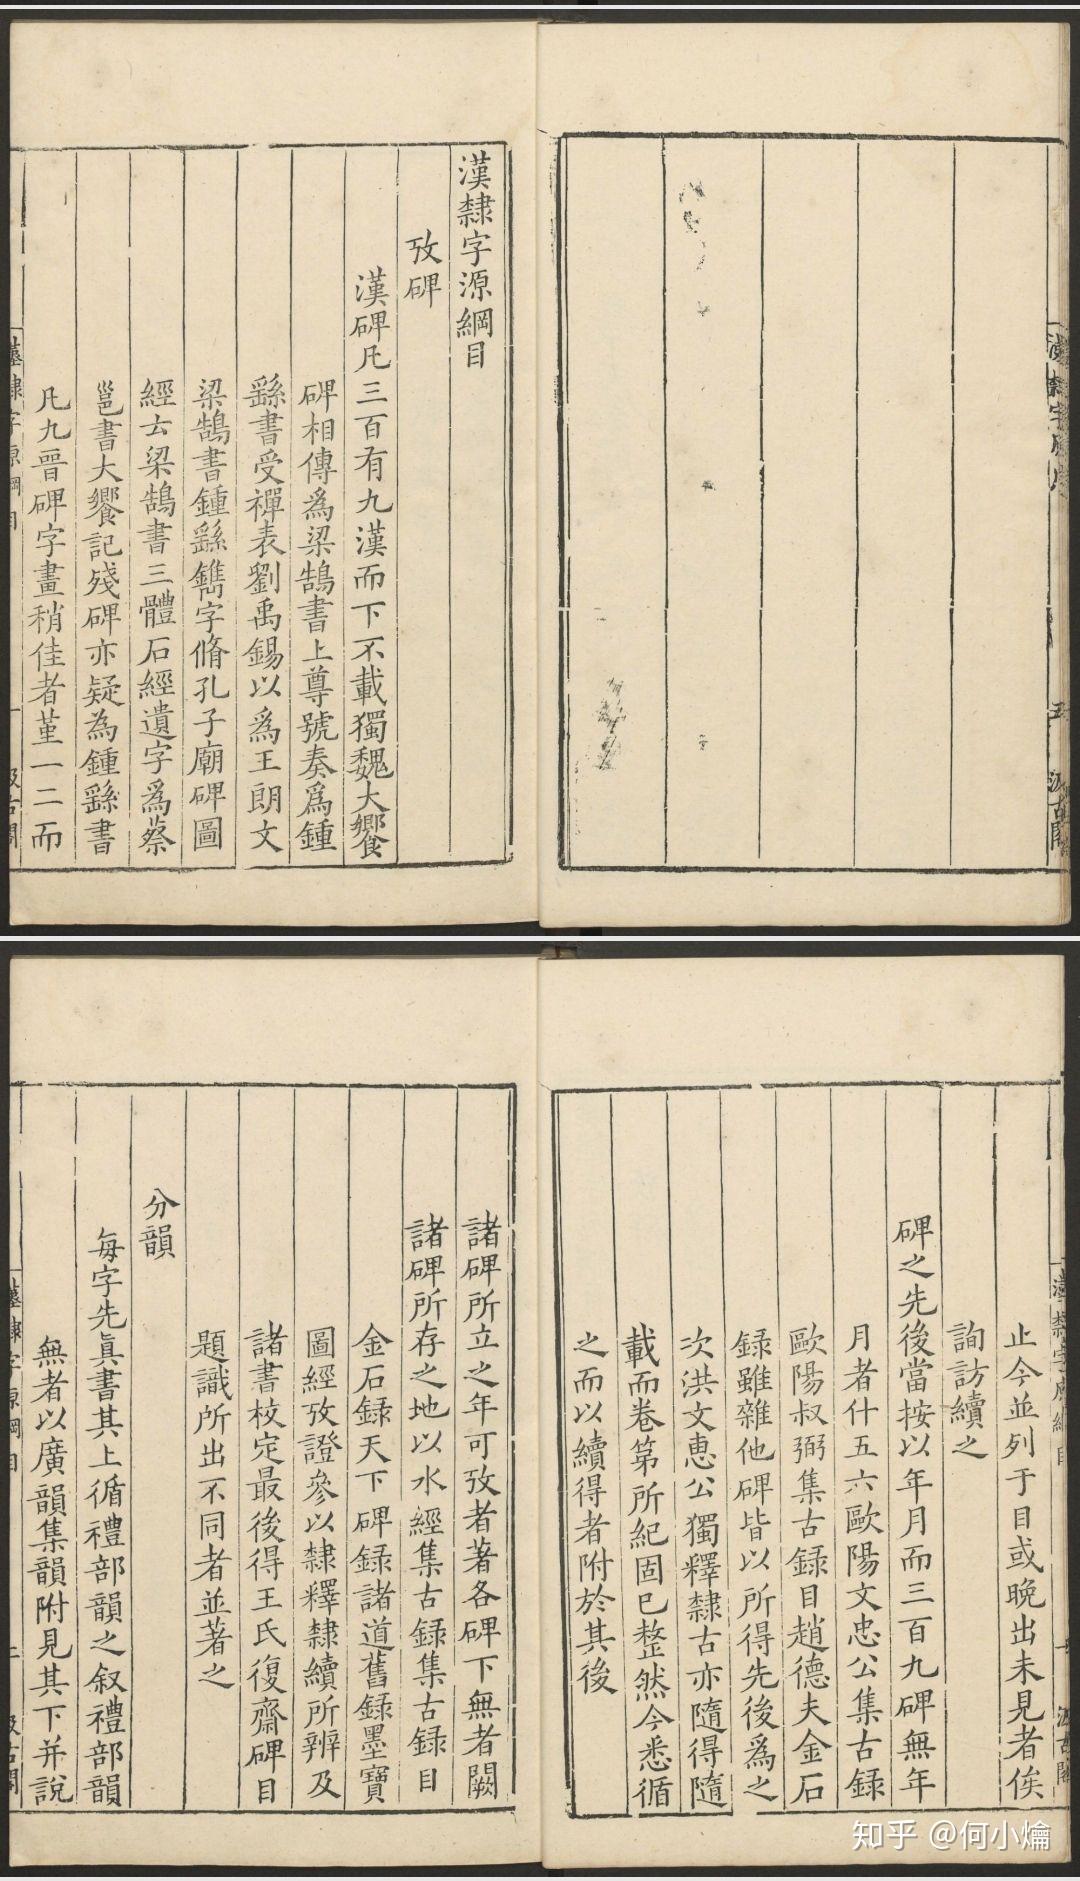 漢隸字源綱目
攷碑
漢碑凡三百有九漢而下不載獨魏大饗
碑相傳爲梁鵠書上尊號奏爲鍾
繇書受禪表劉禹錫以爲王朗文
梁鵠書鍾繇鐫字脩孔子廟碑圖
經云梁鵠書三體石經遺字爲蔡
邕書大饗記殘碑亦疑為鍾繇書
凡九晉碑字畫稍佳者堇一二而
止今並列于目或晚出未見者俟
詢訪續之
碑之先後當按以年月而三百九碑無年
月者什五六歐陽文忠公集古録
歐陽叔弼集古録目趙德夫金石
録雖雜他碑皆以所得先後為之
次洪文惠公獨釋隸古亦隨得隨
載而卷第所紀固已整然今悉循
之而以續得者附於其後
諸碑所立之年可攷者著各碑下無者闕
諸碑所存之地以水經集古録集古録目
金石録天下碑録諸道舊録墨寶
圖經攷證參以隸釋隸續所辨及
諸書校定最後得王氏復齋碑目
題識所出不同者並著之
分韻
每字先眞書其上循禮部韻之叙禮部韻
無者以廣韻集韻附見其下并說
知乎 @何小爚